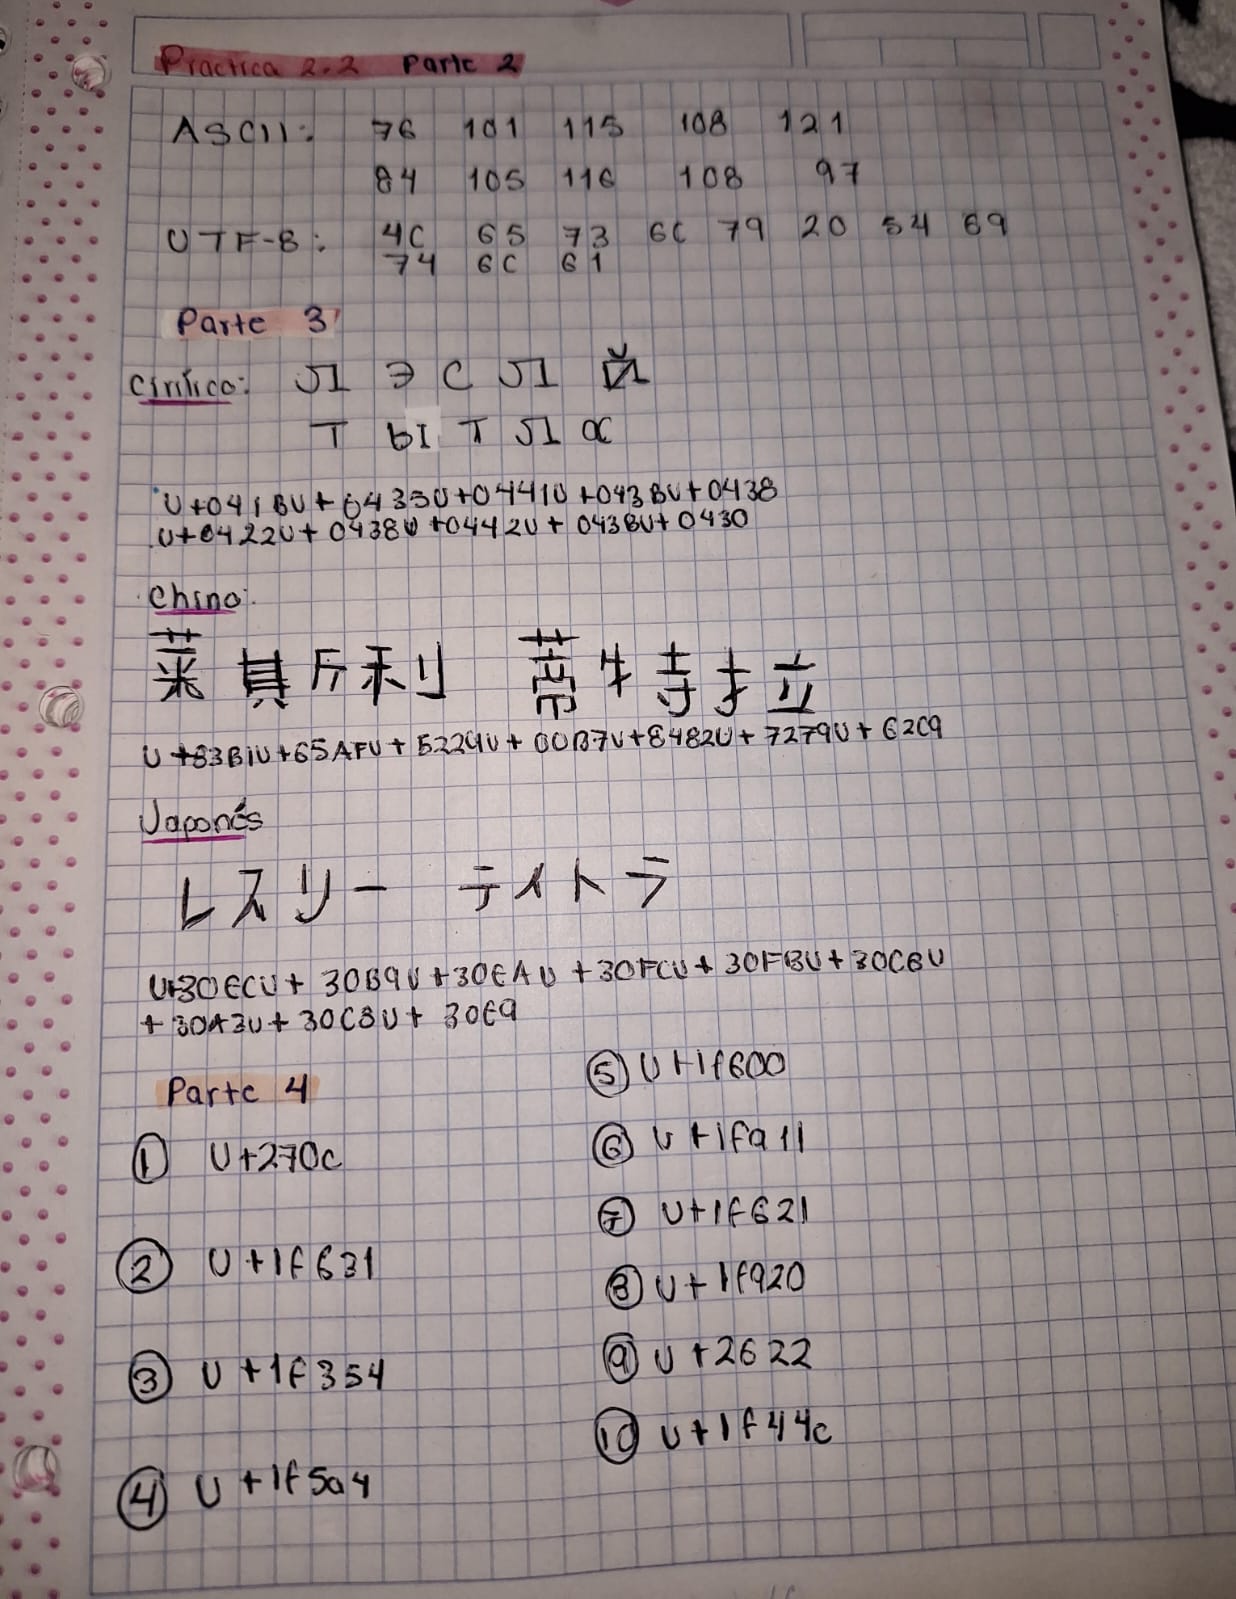 Practica 2.2 Parte 2
ASCII: 76 101 115 108 121
84 105 116 108 97
UTF-8: 4C 65 73 6C 79 20 54 69
74 6C 61
Parte 3
Cirílico: Л Э С Л Й
Т Ы Т Л А
U+041BU+0435U+0441U+043BU+0438
U+0422U+0438U+0442U+043BU+0430
Chino:
菜其斤利 蒂牛寺才立
U+83B1U+65AFU+5229U+00B7U+8482U+7279U+62C9
Japonés
レスリー テイトラ
U+30ECU+30B9U+30EAU+30FCU+30FBU+30C6U
+30A3U+30C8U+30E9
Parte 4
① U+270c
② U+1f631
③ U+1f354
④ U+1f5a4
⑤ U+1f600
⑥ U+1fa11
⑦ U+1f621
⑧ U+1f920
⑨ U+2622
⑩ U+1f44c